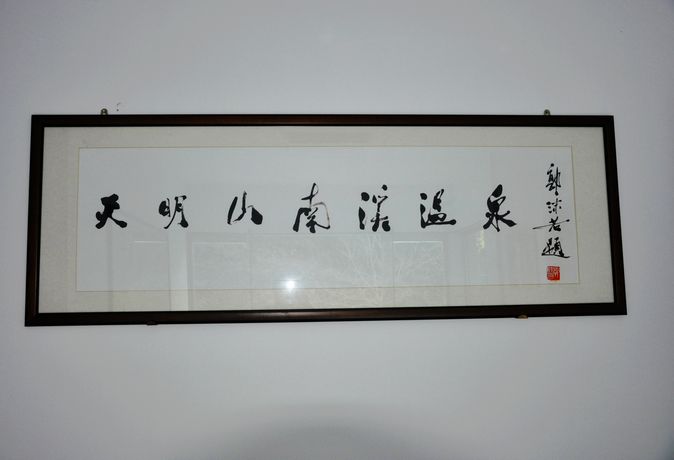 天明山南溪温泉
郭沫若題